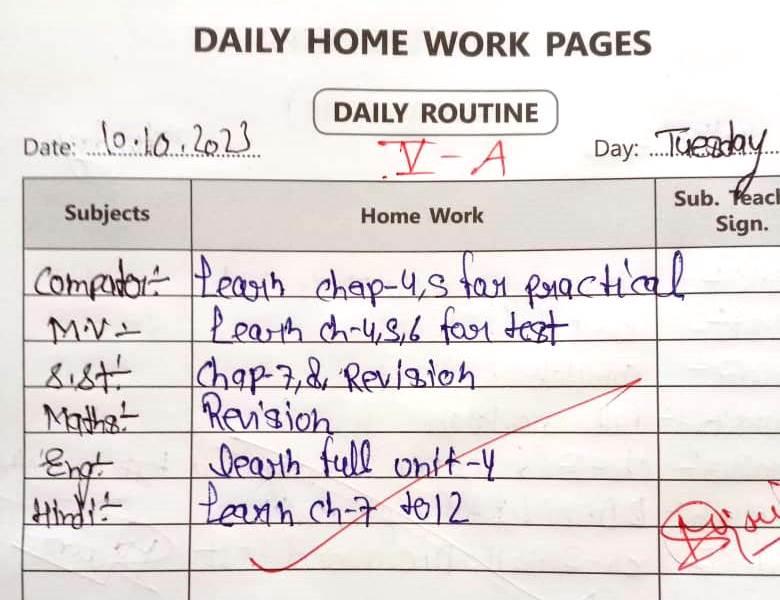 DAILY HOME WORK PAGES
DAILY ROUTINE
Date: 10.10.2023
V-A
Day: Tuesday
Subjects Home Work Sub. Teach Sign.
Computer:- Learn chap-4,5 for practical
M.V:- Learn ch-4,5,6 for test
S.St:- Chap-7,8, Revision
Maths:- Revision
Eng:- Learn full unit-4
Hindi:- Learn ch-7 to 12